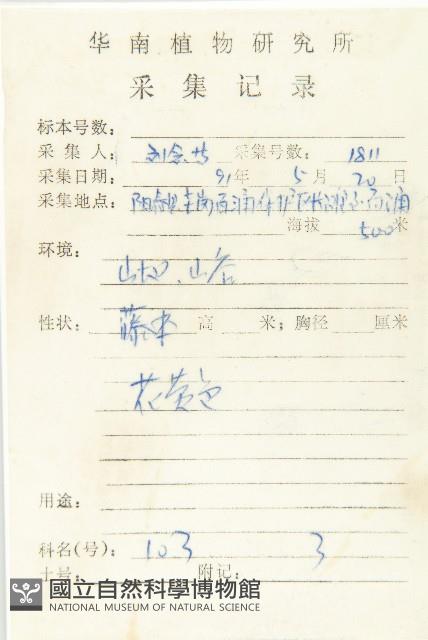 华南植物研究所
采集记录
标本号数：
采集人：刘念 采集号数：1811
采集日期：91年5月20日
采集地点：阳春
海拔500米
环境：
山坡、山谷
性状：藤本 高 米；胸径 厘米
花黄色
用途：
科名(号)：103 3
土号： 附记：
國立自然科學博物館
NATIONAL MUSEUM OF NATURAL SCIENCE